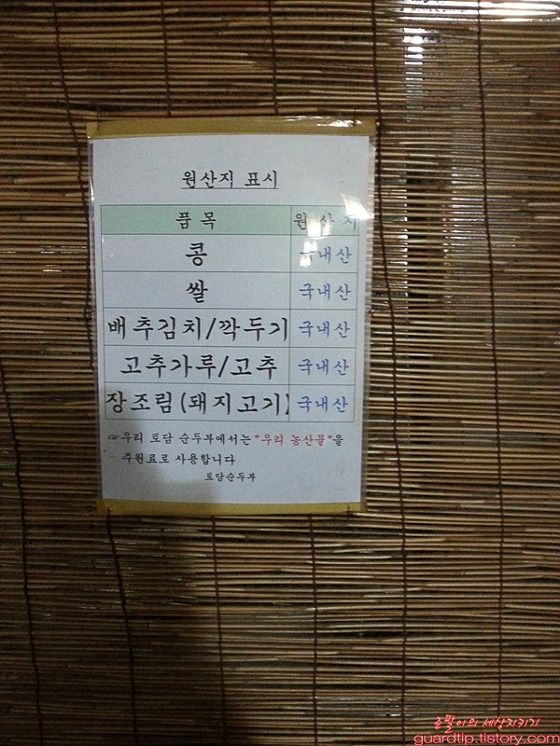 원산지 표시
품 목 원 산 지
콩 국내산
쌀 국내산
배추김치/깍두기 국내산
고추가루/고추 국내산
장조림(돼지고기) 국내산
☞우리 토담 순두부에서는 "우리 농산물"을
주원료로 사용합니다
토담순두부
세상지키기
guardtip.tistory.com